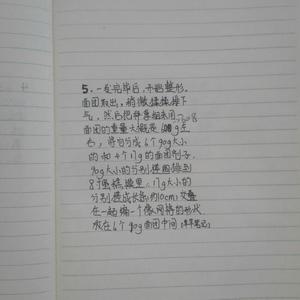 5. 一发完毕后,开始整形。
面团取出,稍微揉揉按下
气,然后把
面团的重量大概是 g左
右,将它分成6个90g大小
的和4个17g的面团剂子,
90g大小的分别揉圆排到
8寸蛋糕模里,17g大小的
分别搓成长条(约10cm)交叠
在一起编一个像网格的形状
放在6个90g面团中间